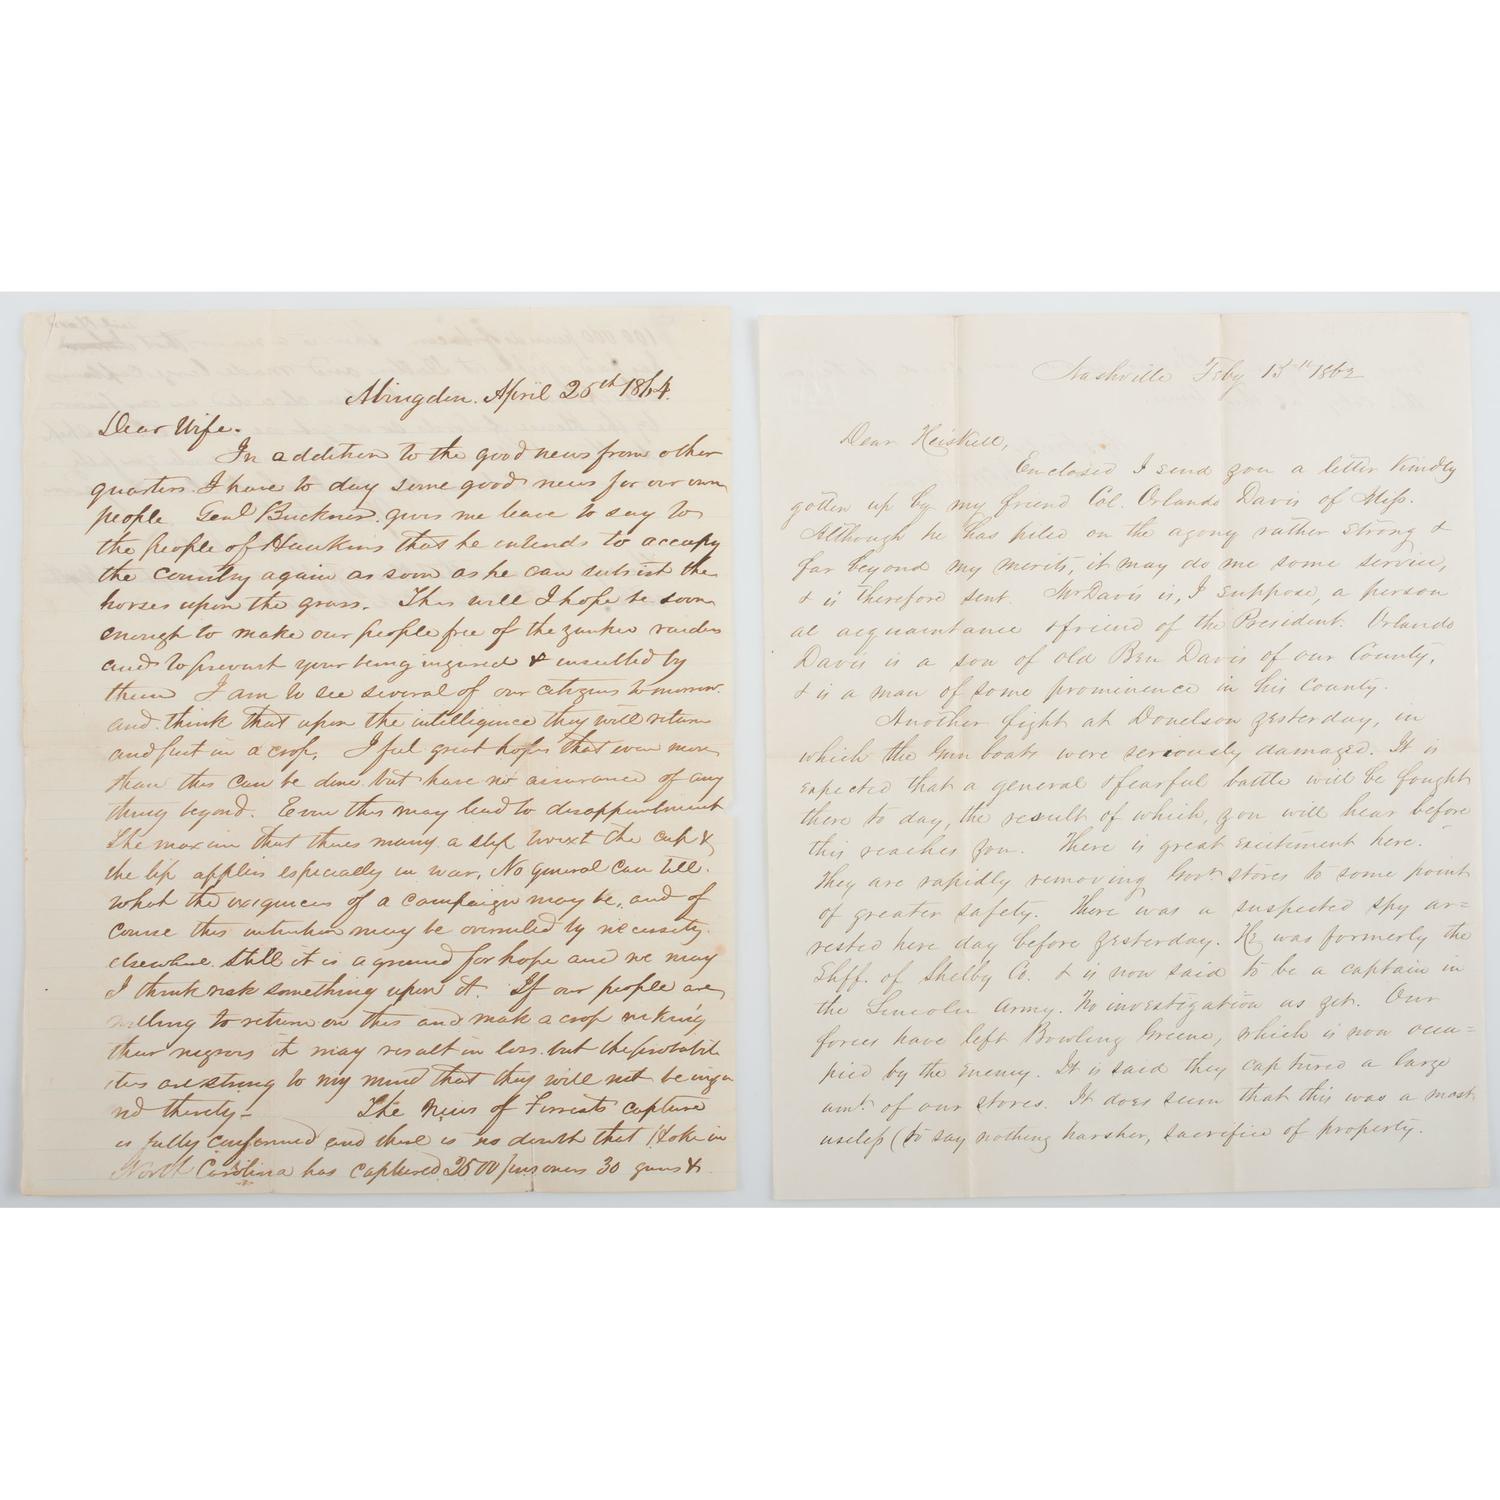 Abingdon. April 25th 1864.
Dear Wife.
In addition to the good news from other
quarters I have to day some good news for our own
people Genl Buckner gives me leave to say to
the people of Hawkins that he intends to occupy
the country again as soon as he can subsist the
horses upon the grass. This will I hope be soon
enough to make our people free of the yankee raiders
and to prevent your being ingured & insulted by
them I am to see several of our citizens tomorrow.
and think that upon the intelligence they will return
and put in a crop. I feel great hopes that even more
than this can be done but have no assurance of any
thing beyond. Even this may lead to disappointment
The maxim that theres many a slip twixt the cup &
the lip applies especially in war. No general can tell
what the exigencies of a campaign may be, and of
course this intention may be overruled by necessity
elsewhere. Still it is a ground for hope and we may
I think risk something upon it. If our people are
willing to return on this and make a crop risking
their negroes it may result in loss but the probabili
ties are strong to my mind that they will not be ingu
red thereby — The News of Forrests capture
is fully confirmed and there is no doubt that Hoke in
North Carolina has captured 2500 prisoners 30 guns &
Nashville Feby 15th 1862
Dear Heiskell,
Enclosed I send you a letter kindly
gotten up by my friend Col. Orlando Davis of Miss.
Although he has piled on the agony rather strong &
far beyond my merits, it may do me some service,
& is therefore sent. Mr Davis is, I suppose, a person
al acquaintance & friend of the President. Orlando
Davis is a son of old Ben Davis of our County,
& is a man of some prominence in his County.
Another fight at Donelson yesterday, in
which the Gun boats were seriously damaged. It is
expected that a general & fearful battle will be fought
there to day, the result of which, you will hear before
this reaches you. There is great excitement here.
They are rapidly removing Govt stores to some point
of greater safety. There was a suspected spy ar=
rested here day before yesterday. He was formerly the
Shff. of Shelby Co. & is now said to be a captain in
the Lincoln army. No investigation as yet. Our
forces have left Bowling Greene, which is now occu=
pied by the enemy. It is said they captured a large
amt. of our stores. It does seem that this was a most
useless (to say nothing harsher, sacrifice of property.